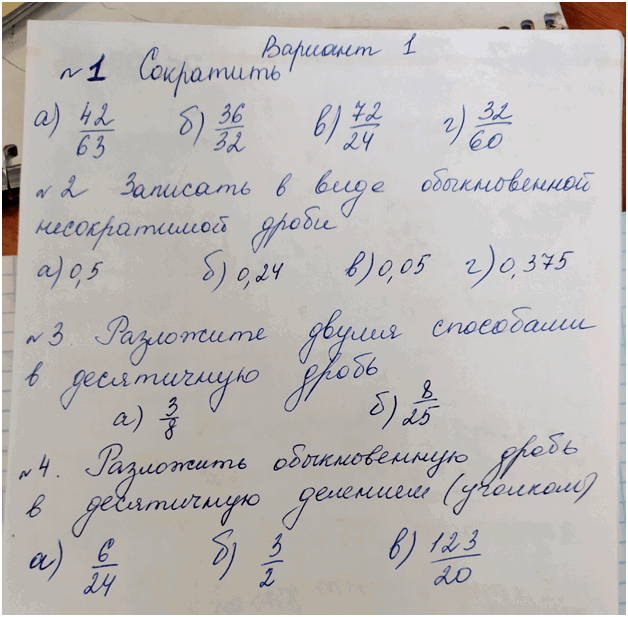 Вариант 1
№1 Сократить
а) 42/63 б) 36/32 в) 72/24 г) 32/60
№2 Записать в виде обыкновенной
несократимой дроби
а) 0,5 б) 0,24 в) 0,05 г) 0,375
№3. Разложите двумя способами
в десятичную дробь
а) 3/8 б) 8/25
№4. Разложить обыкновенную дробь
в десятичную делением (уголком)
а) 6/24 б) 3/2 в) 123/20